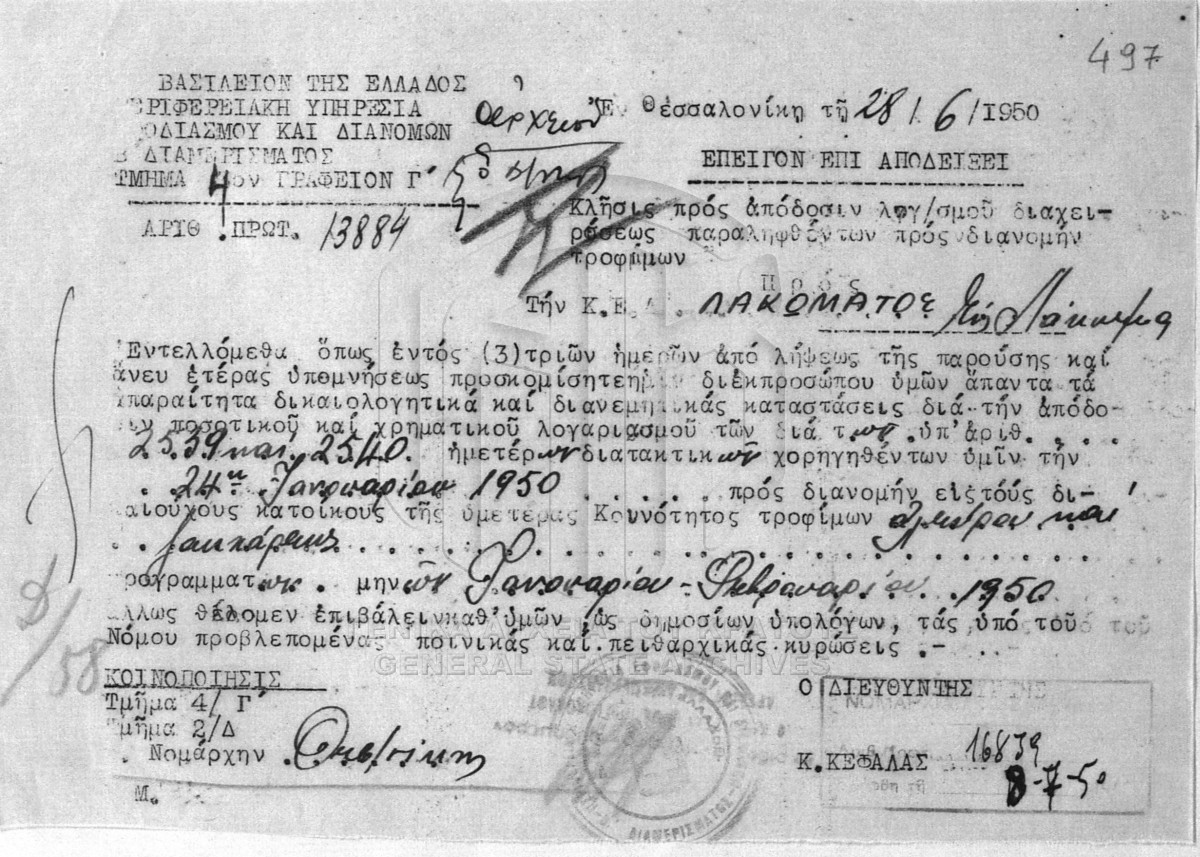 497
ΒΑΣΙΛΕΙΟΝ ΤΗΣ ΕΛΛΑΔΟΣ
ΕΡΙΦΕΡΕΙΑΚΗ ΥΠΗΡΕΣΙΑ
ΟΔΙΑΣΜΟΥ ΚΑΙ ΔΙΑΝΟΜΩΝ
Β ΔΙΑΜΕΡΙΣΜΑΤΟΣ
ΤΜΗΜΑ 4ον ΓΡΑΦΕΙΟΝ Γ΄
ΑΡΙΘ .ΠΡΩΤ. 13884
Ἐν Θεσσαλονίκῃ τῇ 28/6/1950
ΕΠΕΙΓΟΝ ΕΠΙ ΑΠΟΔΕΙΞΕΙ
Κλῆσις πρός ἀπόδοσιν λογ/σμοῦ διαχει-
ρίσεως παραληφθέντων πρός διανομήν
τροφίμων
Πρός
Τήν Κ.Ε.Δ. ΛΑΚΩΜΑΤΟΣ
Ἐντελλόμεθα ὅπως ἐντός (3)τριῶν ἡμερῶν ἀπό λήψεως τῆς παρούσης καί
ἄνευ ἑτέρας ὑπομνήσεως προσκομίσητε ἡμῖν διἐκπροσώπου ὑμῶν ἅπαντα τά
παραίτητα δικαιολογητικά καί διανεμητικάς καταστάσεις διά τήν ἀπόδο-
σιν ποσοτικοῦ καί χρηματικοῦ λογαριασμοῦ τῶν διά τῶν .ὑπ'ἀριθ. . . .
2539 και 2540. ἡμετέρων διατακτικῶν χορηγηθέντων ὑμῖν τήν
. 24ην Ἰανουαρίου 1950 . . . . . πρός διανομήν εἰς τούς δι-
καιούχους κατοίκους τῆς ὑμετέρας Κοινότητος τροφίμων ἀλεύρου και
. . ζακχάρεως . . . . . . . . . . . .
ρογραμματ . μηνῶν Ἰανουαρίου - Φεβρουαρίου . . 1950
ἄλλως θέλομεν ἐπιβάλειν καθ'ὑμῶν ,ὡς δημοσίων ὑπολόγων, τάς ὑπό τοῦ
Νόμου προβλεπομένας ποινικάς καί πειθαρχικάς κυρώσεις .-
GENERAL STATE ARCHIVES
ΚΟΙΝΟΠΟΙΗΣΙΣ
Τμῆμα 4/ Γ΄
Τμῆμα 2/Δ
. Νομάρχην
Μ.
Ο ΔΙΕΥΘΥΝΤΗΣ
Κ.ΚΕΦΑΛΑΣ
16839
8-7-50
ΔΙΑΜΕΡΙΣΜΑΤΟΣ
Δ/58